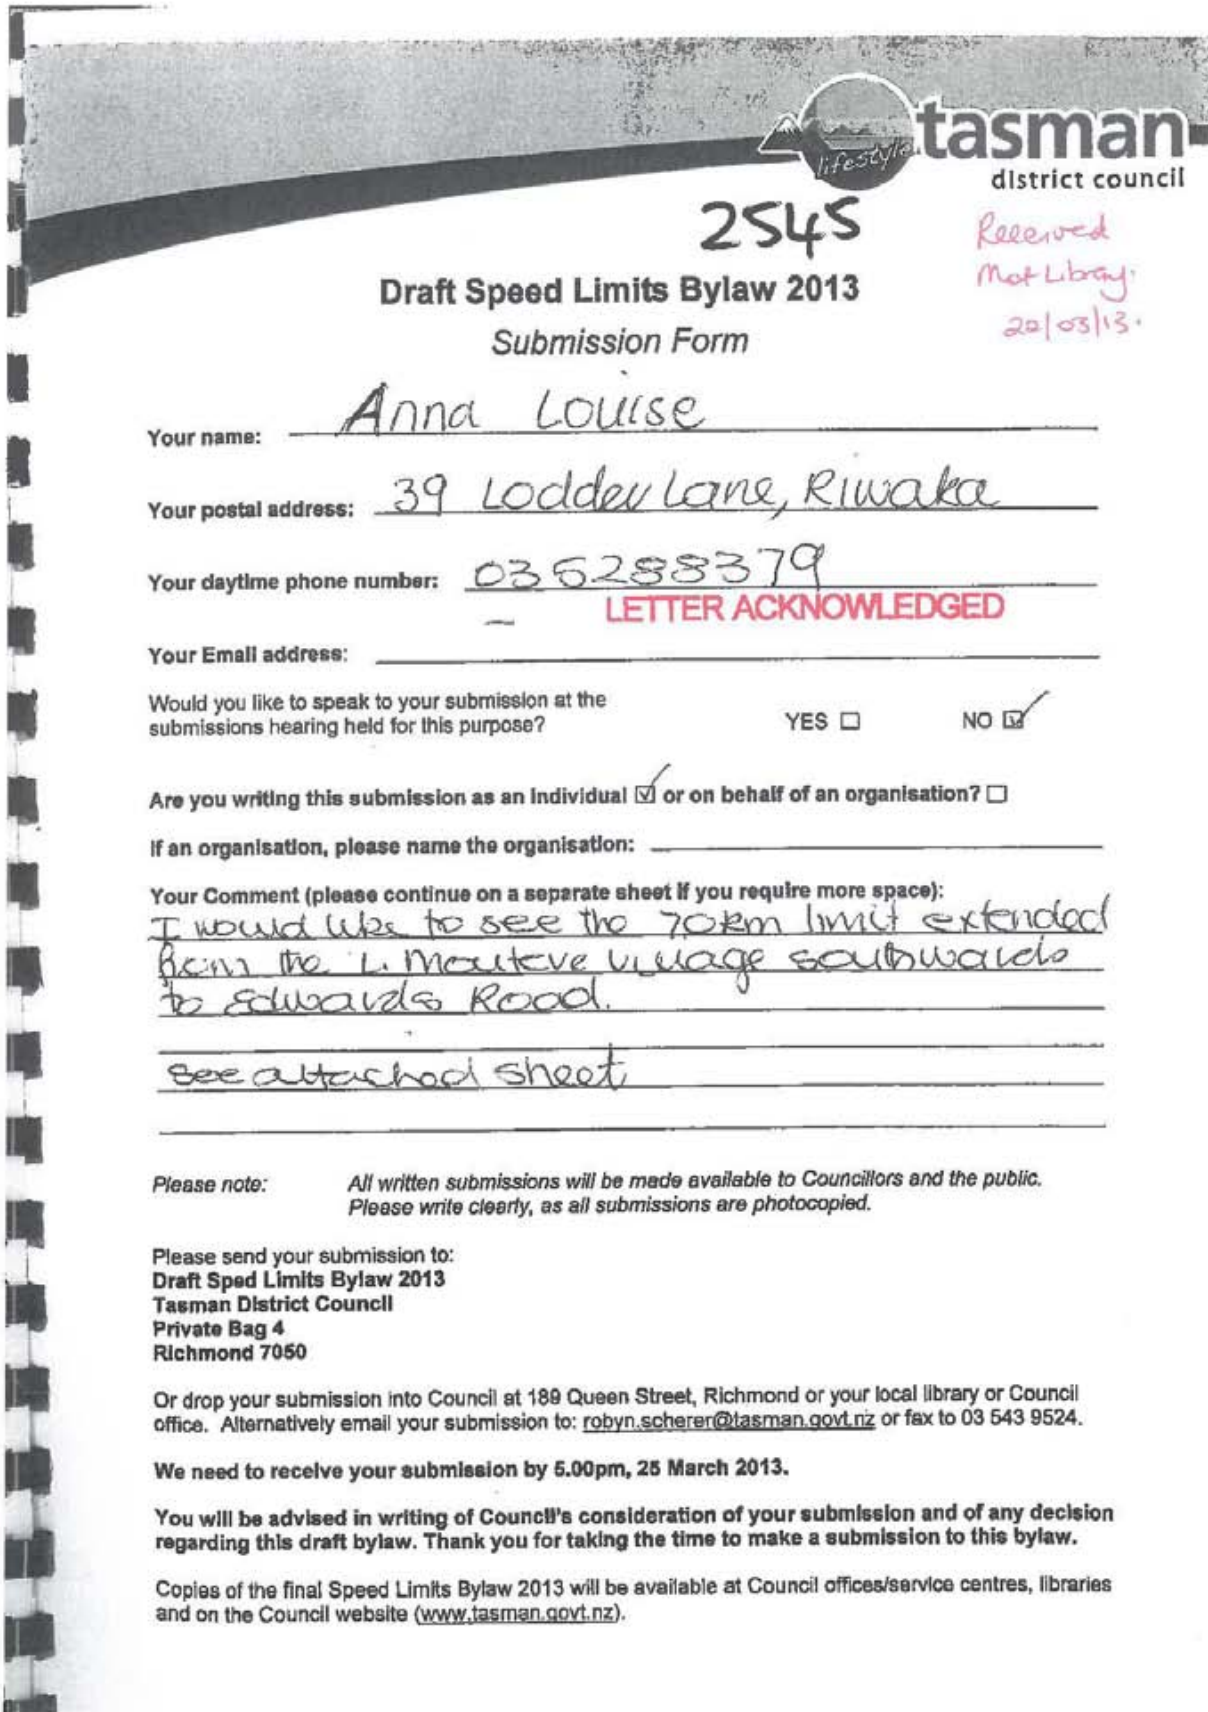 lifestyle
tasman
district council
2545
Received
Mot Library.
20/03/13.
Draft Speed Limits Bylaw 2013
Submission Form
Your name: Anna Louise
Your postal address: 39 Lodder Lane, Riwaka
Your daytime phone number: 035288379
LETTER ACKNOWLEDGED
Your Email address: —
Would you like to speak to your submission at the
submissions hearing held for this purpose? YES ☐ NO ☑
Are you writing this submission as an individual ☑ or on behalf of an organisation? ☐
If an organisation, please name the organisation:
Your Comment (please continue on a separate sheet if you require more space):
I would like to see the 70km limit extended
from the L. Mouteve village southwards
to Edwards Road.
see attached sheet
Please note: All written submissions will be made available to Councillors and the public.
Please write clearly, as all submissions are photocopied.
Please send your submission to:
Draft Sped Limits Bylaw 2013
Tasman District Council
Private Bag 4
Richmond 7050
Or drop your submission into Council at 189 Queen Street, Richmond or your local library or Council
office. Alternatively email your submission to: robyn.scherer@tasman.govt.nz or fax to 03 543 9524.
We need to receive your submission by 5.00pm, 25 March 2013.
You will be advised in writing of Council's consideration of your submission and of any decision
regarding this draft bylaw. Thank you for taking the time to make a submission to this bylaw.
Copies of the final Speed Limits Bylaw 2013 will be available at Council offices/service centres, libraries
and on the Council website (www.tasman.govt.nz).